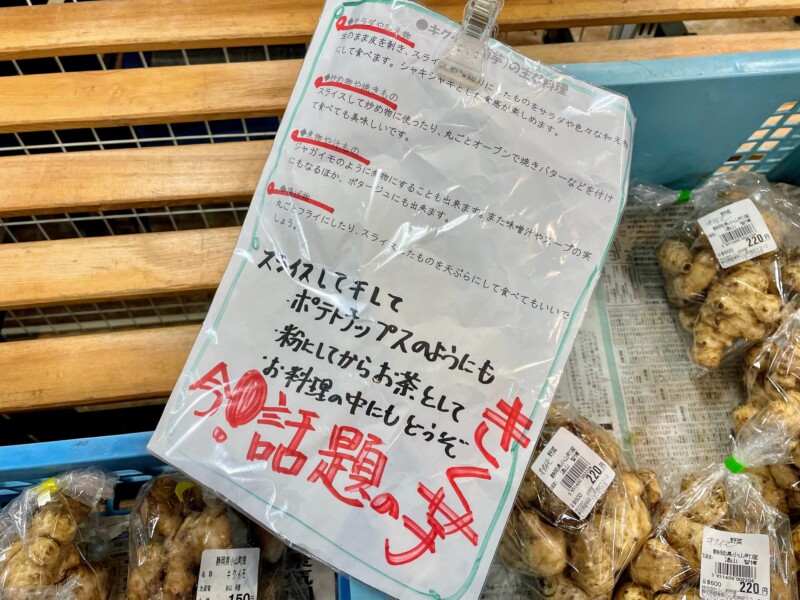 ●キク
芋)の主な料理
●サラダや和え物
生のまま皮を剥き、スライス
にしたものをサラダや色々な和えも
にして食べます。シャキシャキとした食感が楽しめます。
●炒め物や焼きもの
スライスして炒め物に使ったり、丸ごとオーブンで焼きバターなどを付け
て食べても美味しいです。
●煮物や汁もの
ジャガイモのように煮物にすることも出来ます。また味噌汁やスープの実
にもなるほか、ポタージュにも出来ます。
●揚げ物
丸ごとフライにしたり、スライスしたものを天ぷらにして食べてもいいで
しょう。
スライスして干して
・ポテトチップスのようにも
・粉にしてからお茶として
・お料理の中にもどうぞ
今!話題の
きく芋
野菜
静岡県小山町産
220円
キクイモ 野菜
静岡県小山町産
湯山
220円
キクイモ 野菜
静岡県小山町産
湯山
220円
静岡県小山町産
名称 キクイモ
150円